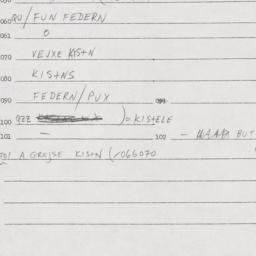 060 QU/FUN FEDERN
061 0
070 VEJXE KISTN
080 KISTNS
090 FEDERN/PUX 091
100 922 )= KISTELE
101 — 102 — BUT
A GREJSE KISTN (/066070